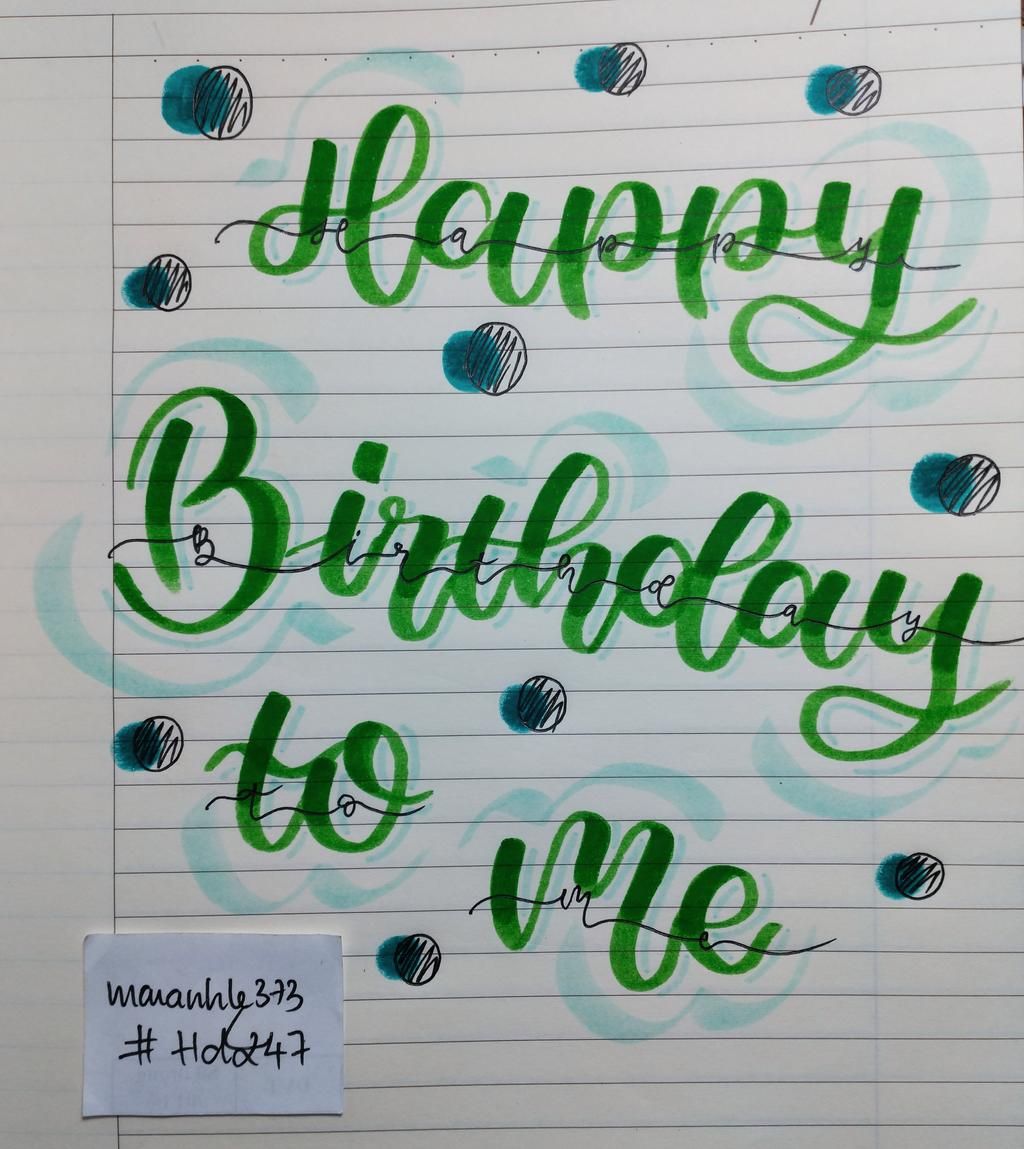 Happy
Happy
Birthday
Birthday
to
to
me
me
maianhle373